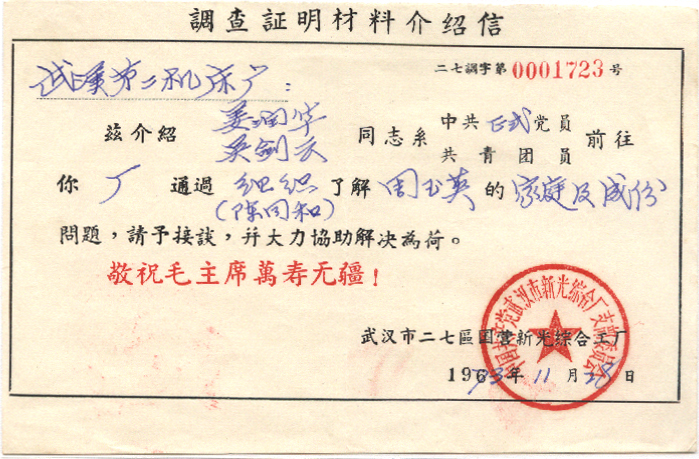 調查証明材料介绍信
二七調字第0001723号
武汉市二机床厂：
兹介紹 姜润华 同志系 中共正式党员 前往
吴剑云 共青团员
你厂 通過 组织 了解 周玉英 的 家庭及成份
(陈同和)
問題，請予接談，并大力協助解决為荷。
敬祝毛主席萬寿无疆！
武汉市二七區国营新光综合工厂
1973年11月28日